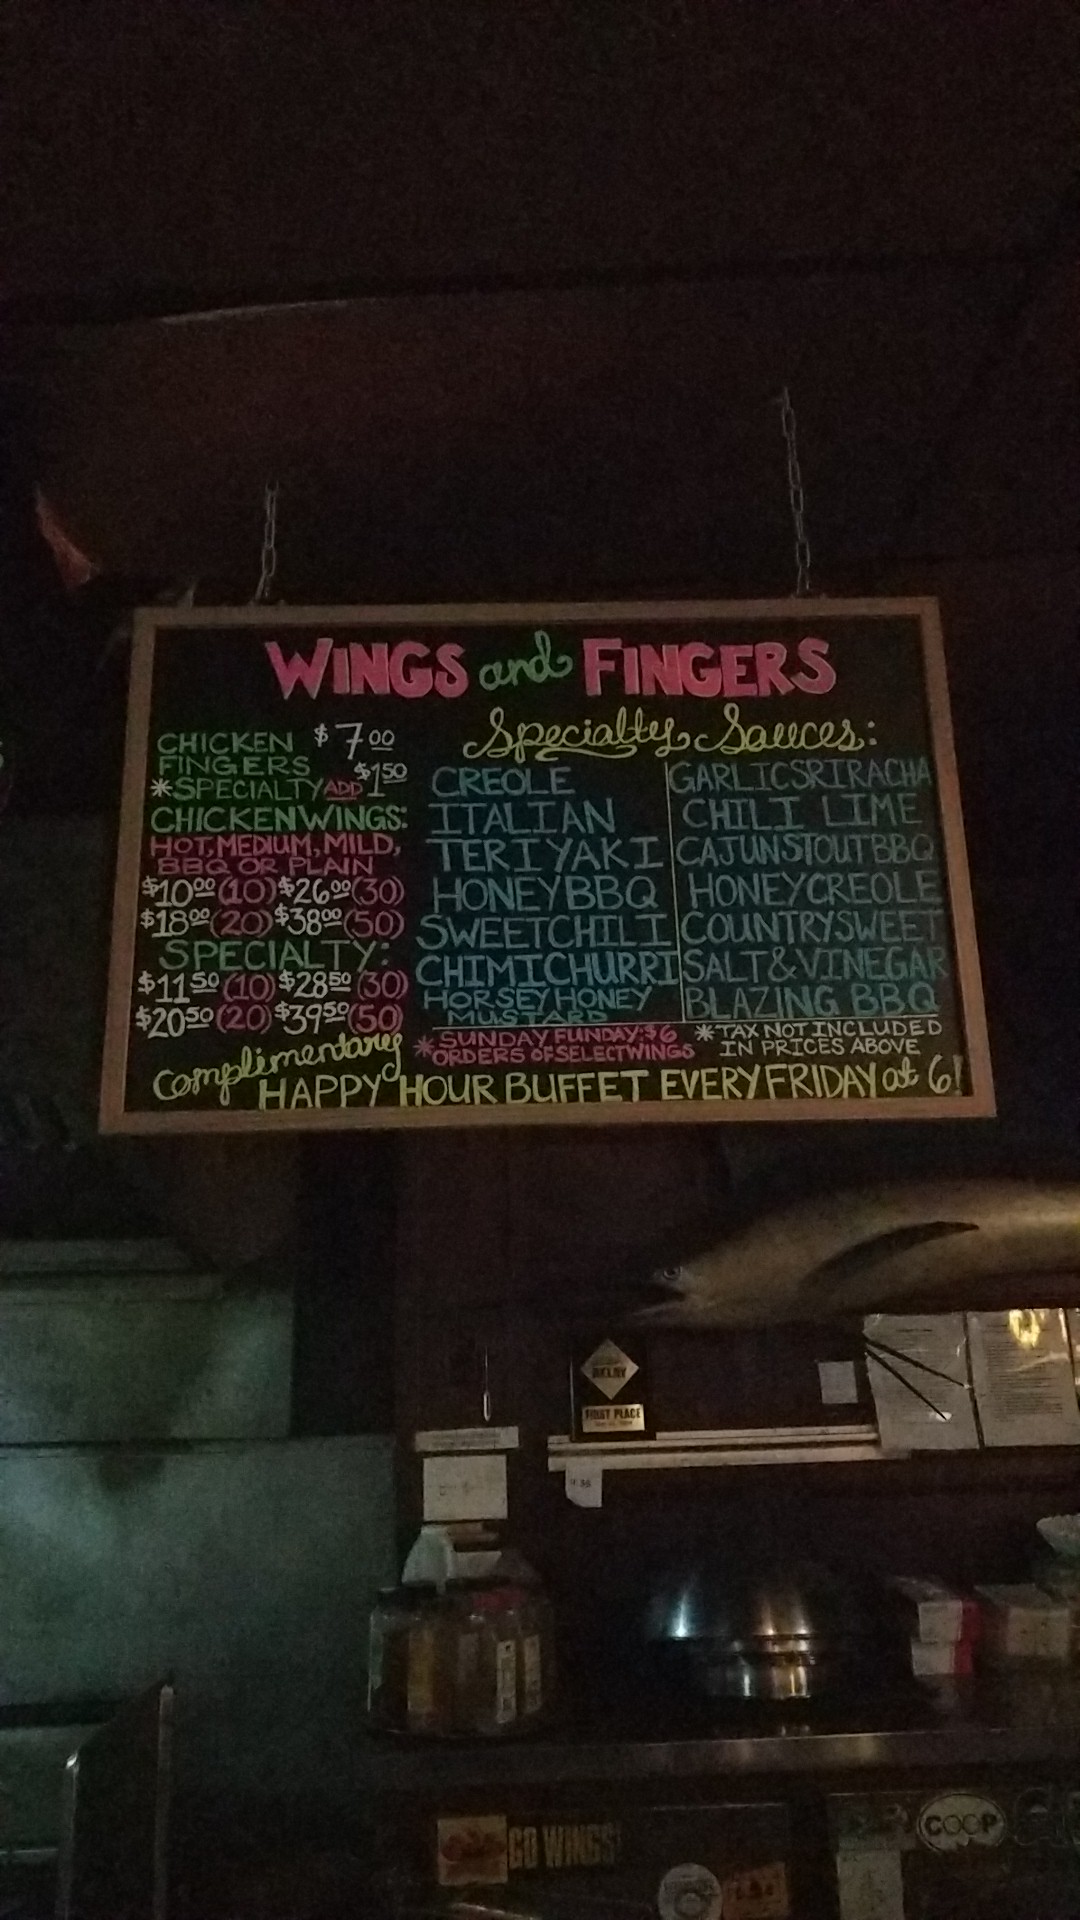 WINGS and FINGERS
CHICKEN FINGERS $7.00
*SPECIALTY ADD $1.50
CHICKEN WINGS:
HOT, MEDIUM, MILD,
BBQ OR PLAIN
$10.00 (10) $26.00 (30)
$18.00 (20) $38.00 (50)
SPECIALTY:
$11.50 (10) $28.50 (30)
$20.50 (20) $39.50 (50)
Specialty Sauces:
CREOLE
ITALIAN
TERIYAKI
HONEY BBQ
SWEET CHILI
CHIMICHURRI
HORSEY HONEY
MUSTARD
GARLIC SRIRACHA
CHILI LIME
CAJUN STOUT BBQ
HONEY CREOLE
COUNTRY SWEET
SALT & VINEGAR
BLAZING BBQ
*SUNDAY FUNDAY: $6
ORDERS OF SELECT WINGS
*TAX NOT INCLUDED
IN PRICES ABOVE
Complimentary
HAPPY HOUR BUFFET EVERY FRIDAY at 6!
RELAY
FIRST PLACE
GO WINGS!
COOP